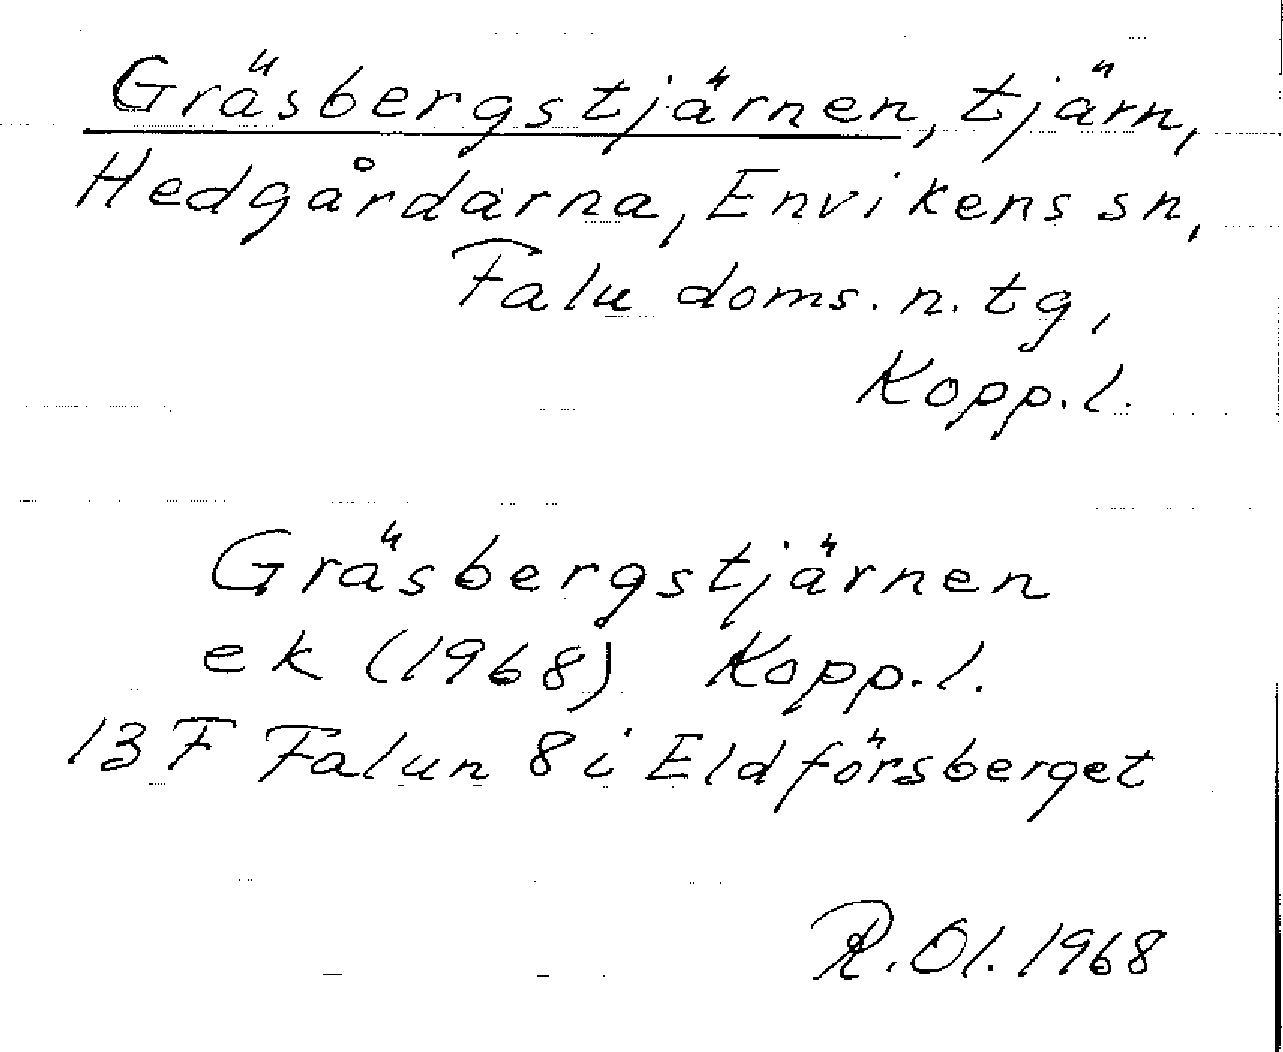 Gräsbergstjärnen, tjärn,
Hedgårdarna, Envikens sn,
Falu doms. n. tg,
Kopp. l.
Gräsbergstjärnen
ek (1968) Kopp. l.
13 F Falun 8 i Eldförsberget
R. Ol. 1968